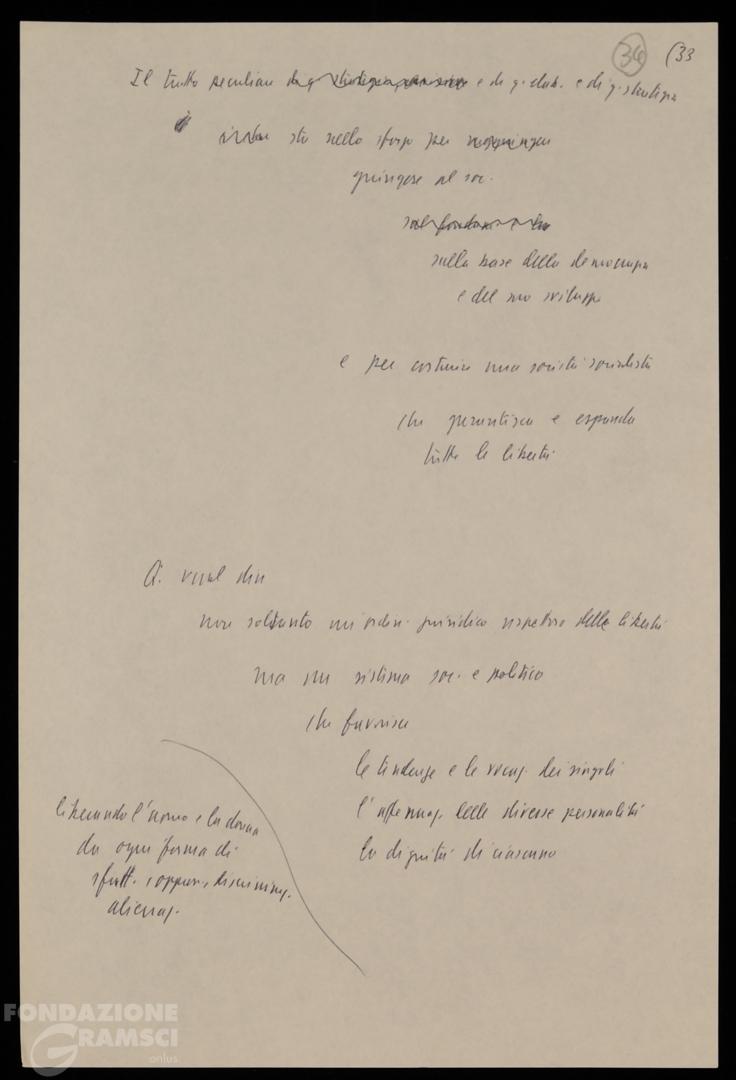 34 (33
Il tratto peculiare e di q. elab. e di q. strategia
sta nello sforzo per
giungere al soc.
sulla base della democrazia
e del suo sviluppo
e per costruire una società socialista
che garantisca e espanda
tutte le libertà
Q. vuol dire
non soltanto un ordin. giuridico rispettoso delle libertà
ma un sistema soc. e politico
che favorisce
le tendenze e le vocaz. dei singoli
l'affermaz. delle diverse personalità
la dignità di ciascuno
liberando l'uomo e la donna
da ogni forma di
sfrutt., oppres., discriminaz.
alienaz.
FONDAZIONE
GRAMSCI
onlus